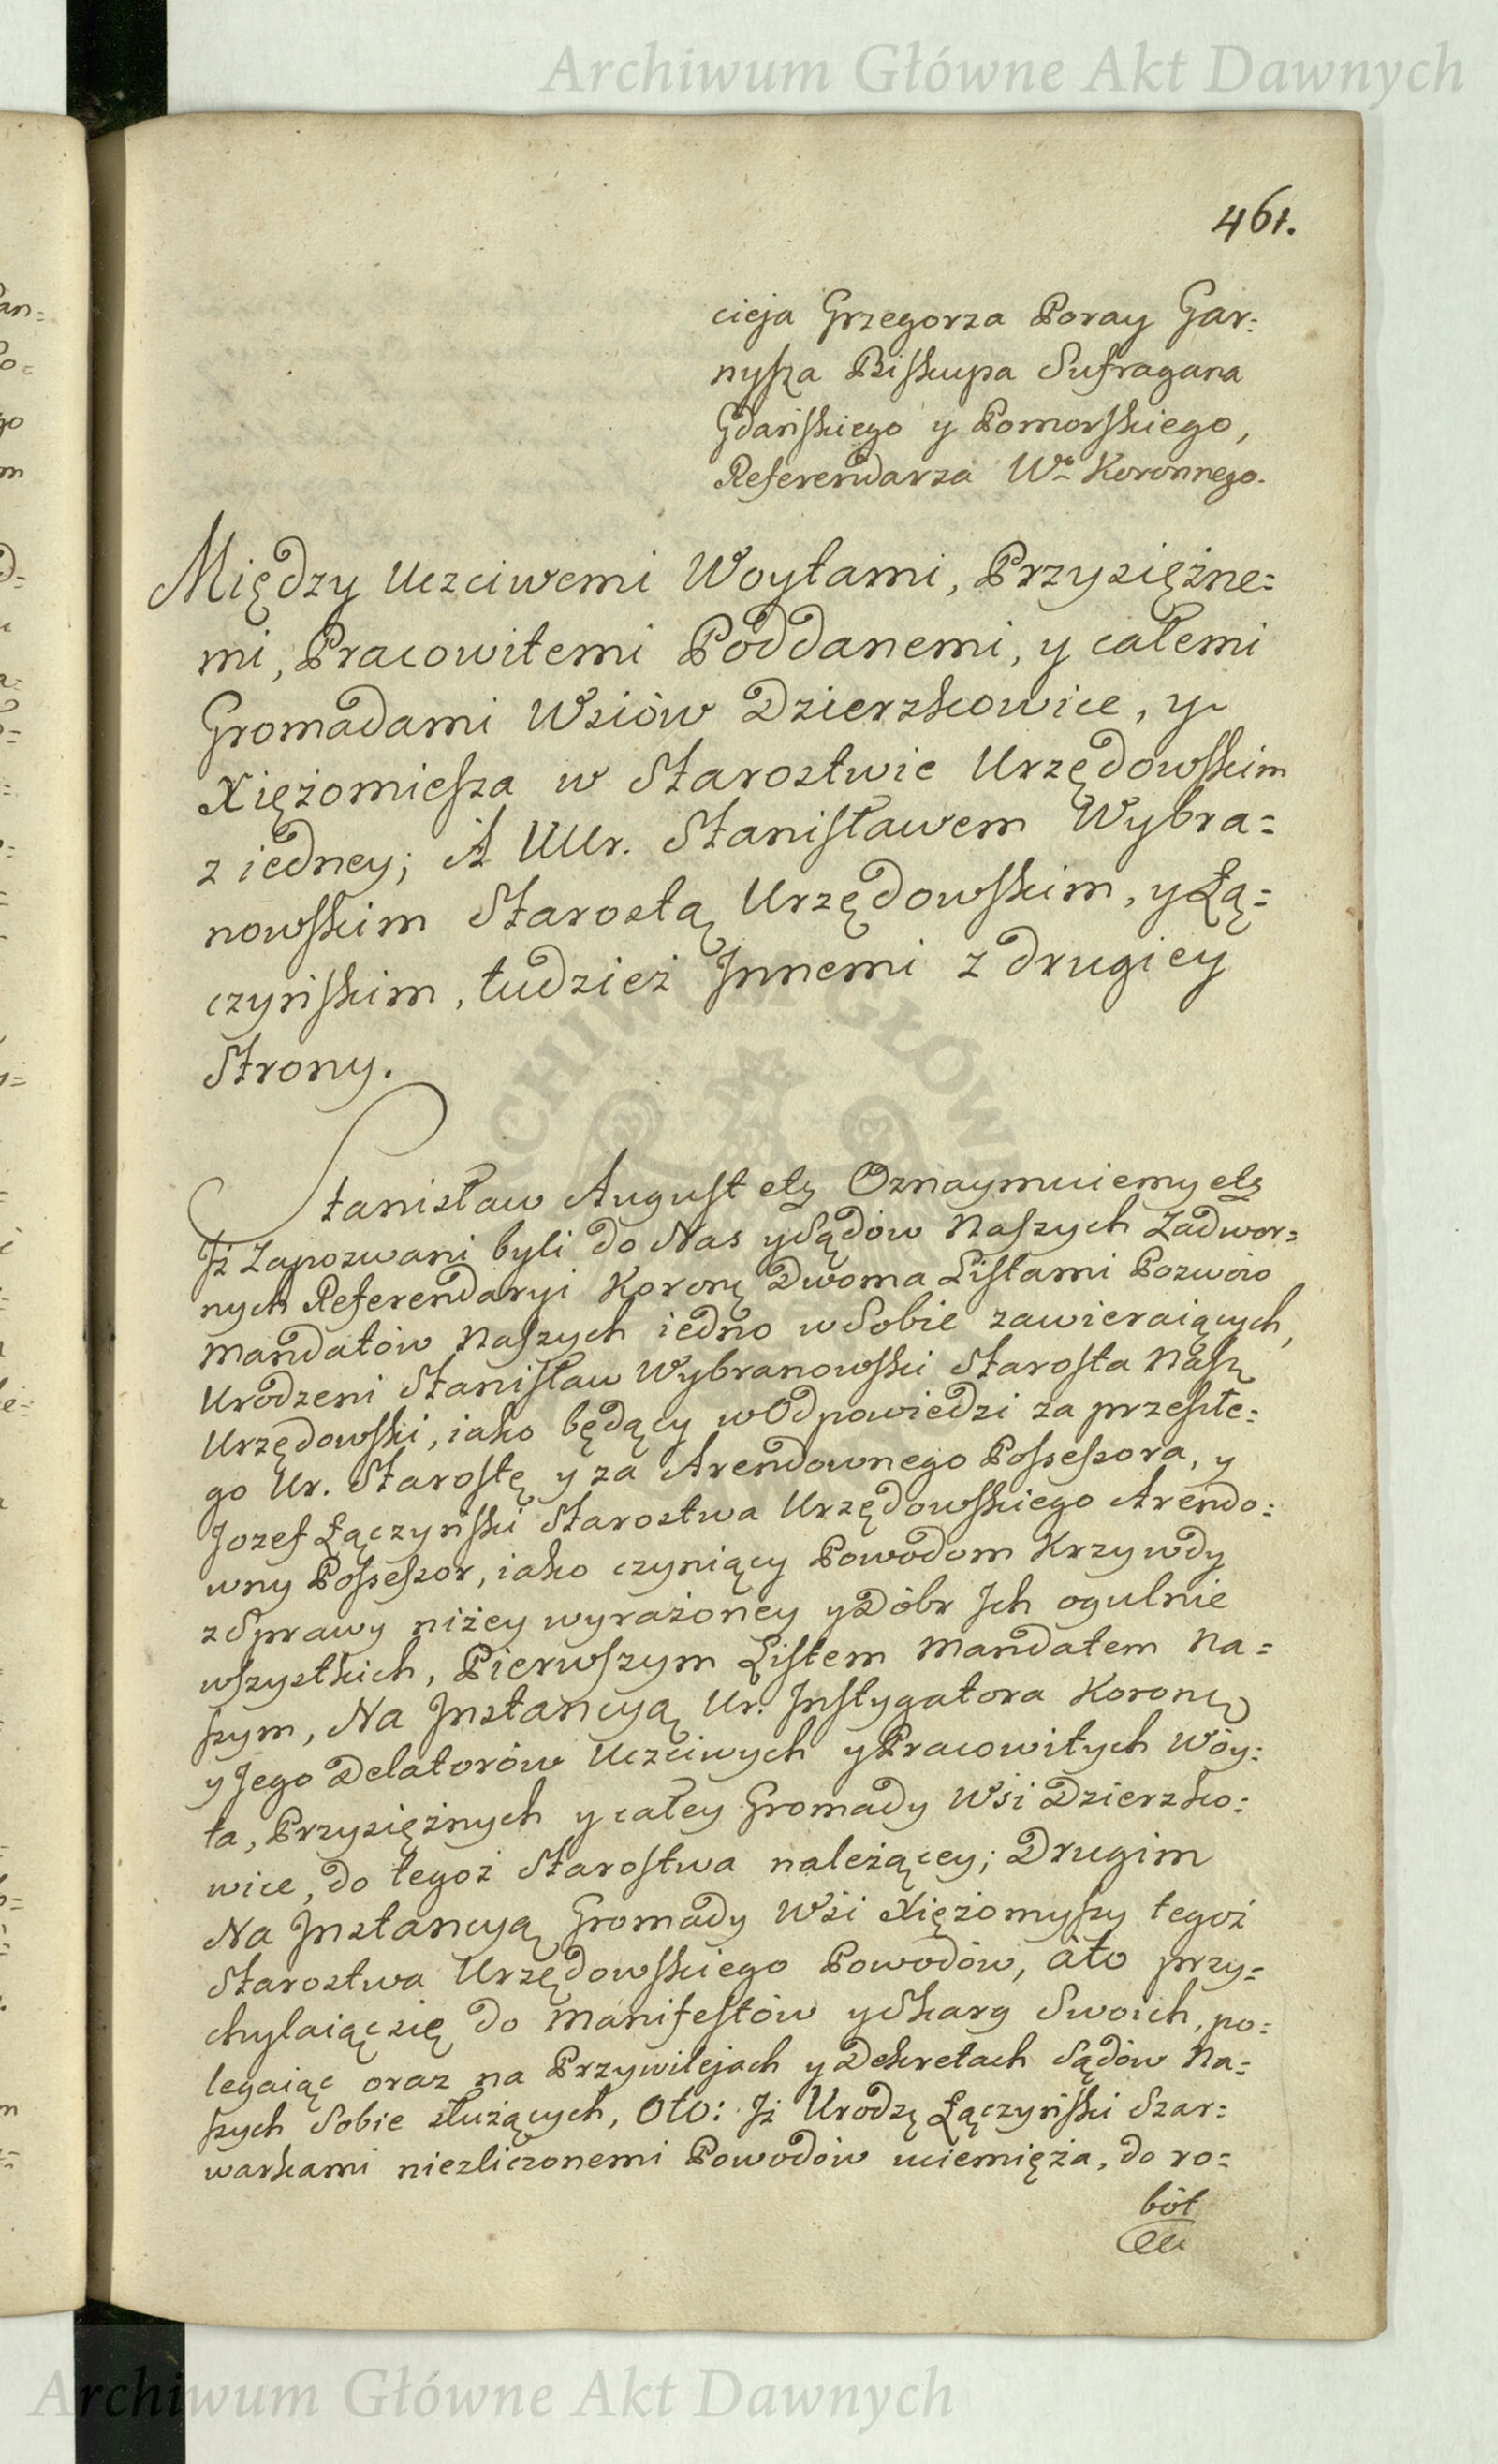 Archiwum Główne Akt Dawnych
461.
cieja Grzegorza Poray Gar:
nysza Biskupa Sufragana
Gdańskiego y Pomorskiego,
Referendarza Wo Koronnego.
Między Uczciwemi Woytami, Przysiężne=
mi, Pracowitemi Poddanemi, y całemi
Gromadami Wsiów Dzierzkowice, y
Xiężomiesza w Starostwie Urzędowskim
z iedney; A UUr. Stanisławem Wybra=
nowskim Starostą Urzędowskim, y Łą=
czyńskim, tudzież Jnnemi z drugiey
Strony.
Stanisław August etz Oznaymuiemy etz
Jż Zapozwani byli do Nas y Sądów Naszych Zadwor=
nych Referendaryi Koronę Dwoma Listami Pozwów
Mandatów Naszych iedno w Sobie zawieraiących,
Urodzeni Stanisław Wybranowski Starosta Nasz
Urzędowski, iako będący w Odpowiedzi za przeszłe=
go Ur. Starostę y za Arendownego Possessora, y
Jozef Łączyński Starostwa Urzędowskiego Arendo=
wny Possessor, iako czyniący Powodom Krzywdy
z Sprawy niżey wyrażoney y Dóbr Jch ogulnie
wszystkich, Pierwszym Listem Mandatem Na=
szym, Na Jnstancyą Ur. Jnstygatora Koronę
y Jego Delatorów Uczciwych y Pracowitych Wóy=
ta, Przysiężnych y całey Gromady Wsi Dzierzko=
wice, do tegoż Starostwa należącey; Drugim
Na Jnstancyą Gromady Wsi Xiężomyszy tegoż
Starostwa Urzędowskiego Powodów, áto przy=
chylaiąc się do Manifestów y Skarg Swoich, po=
legaiąc oraz na Przywilejach y Dekretach Sądów Na=
szych Sobie służących, Oto: Jż Urodzę Łączyński Szar=
warkami niezliczonemi Powodów uciemięża, do ro=
bót
Archiwum Główne Akt Dawnych